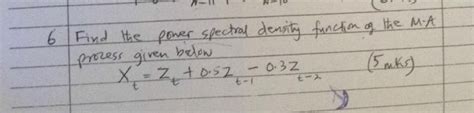 6 Find the power spectral density function of the M.A
process given below
X_t = Z_t + 0.5Z_{t-1} - 0.3Z_{t-2} (5 mks)